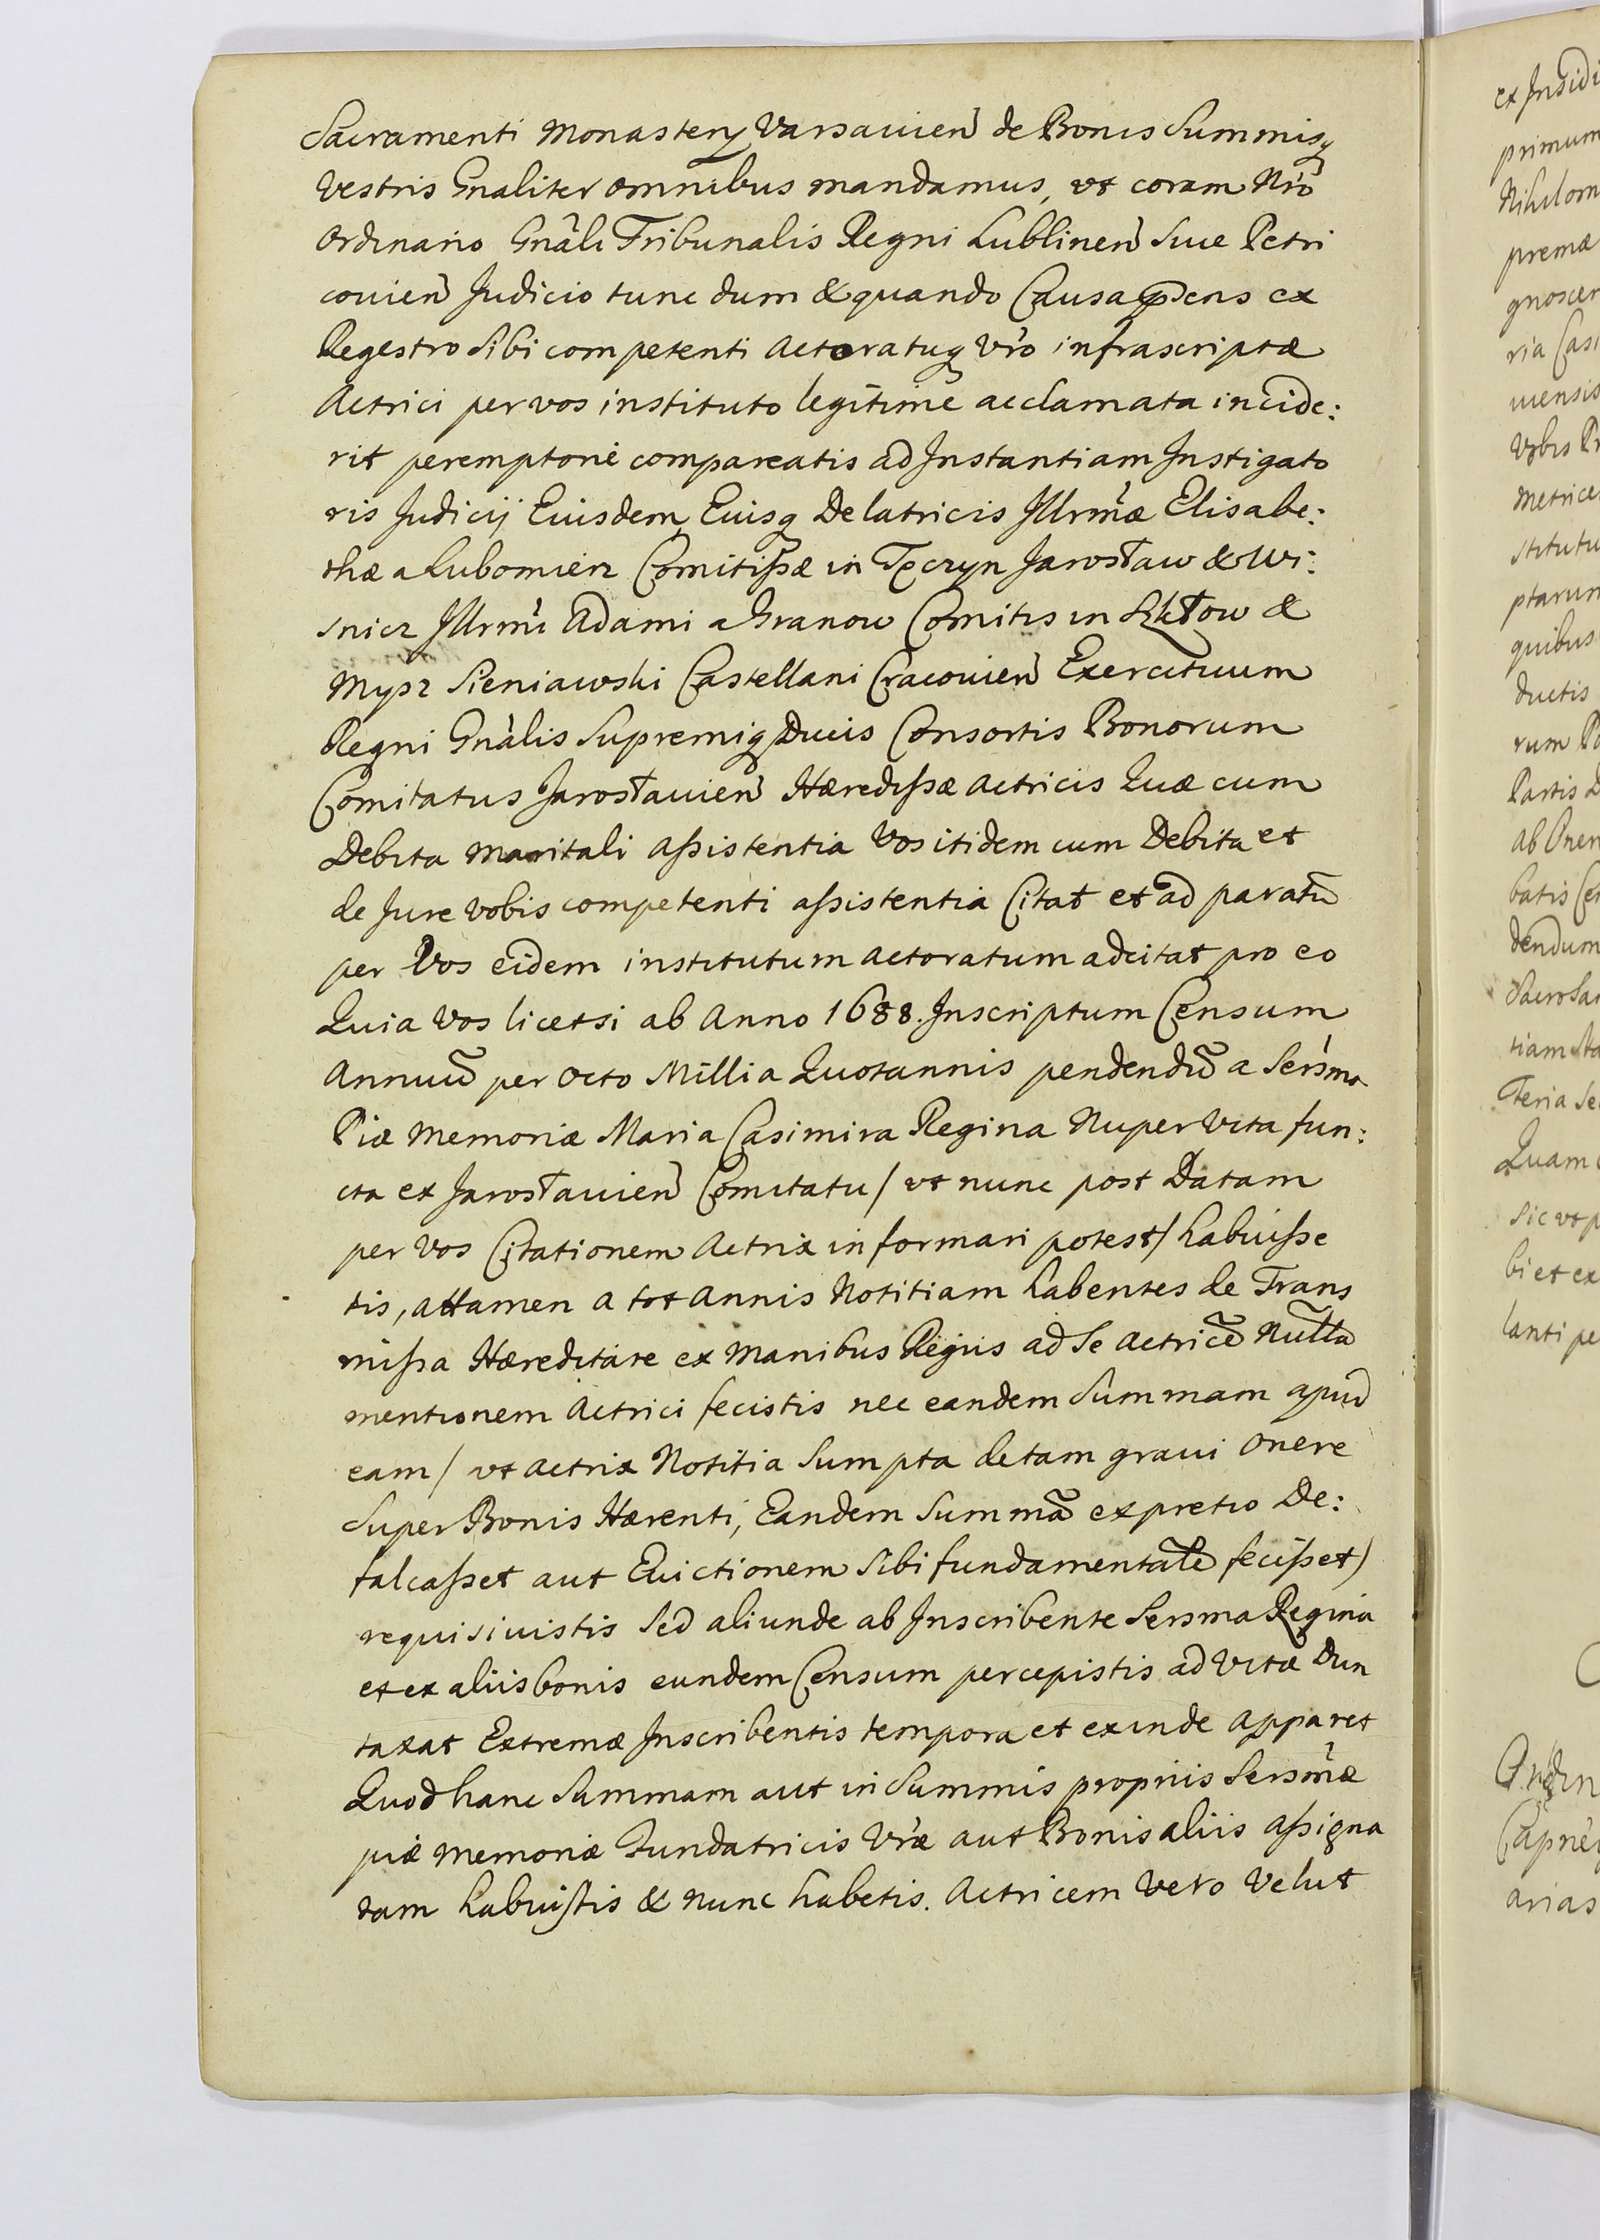 Sacramenti Monastery Varsauien̄ de Bonis Summisq
Vestris Gnaliter omnibus mandamus, ut coram Nrō
Ordinario Gnāli Tribunalis Regni Lublinen̄ Siue Petri
couien̄ Judicio tunc dum & quando Causa pn̄sens ex
Regestro Sibi competenti Actoratuq Vrō infrascriptæ
Actrici per vos instituto legitime acclamata incide:
rit peremptorie compareatis ad Instantiam Instigato
ris Judicij Eiusdem Eiusq Delatricis Jllrmæ Elisabe:
thæ a Lubomierz Comitißæ in Tęczyn Jarosław & Wi:
snicz Jllrmi Adami a Granow Comitis in Szkłow &
Mysz Sieniawski Castellani Cracouien̄ Exercituum
Regni Gnālis Supremiq Ducis Consortis Bonorum
Comitatus Jarosłauien̄ Hæredißæ Actricis Quæ cum
Debita Maritali aßistentia Vos itidem cum Debita et
de Jure vobis competenti aßistentia Citat et ad paratū
per Vos eidem institutum actoratum adcitat pro eo
Quia Vos licet si ab Anno 1688. Inscriptum Censum
Annuū per octo Millia Quotannis pendendū a Sersma
Piæ Memoriæ Maria Casimira Regina Nuper Vita fun:
cta ex Jarosłauien̄ Comitatu / ut nunc post Datam
per Vos Citationem Actrix informari potest / habuiße
tis, attamen a tot Annis Notitiam habentes de Trans
mißa Hæreditate ex Manibus Regiis ad Se Actricē Nullā
mentionem Actrici fecistis nec eandem Summam apud
eam / ut Actrix Notitia Sumpta de tam graui onere
Super Bonis Hærenti, Eandem Summā ex pretio De:
falcaßet aut Euictionem Sibi fundamentalē fecißet /
requisiuistis Sed aliunde ab Inscribente Sersma Regina
et ex aliis bonis eundem Censum percepistis ad Vitæ Dun
taxat Extremæ Inscribentis tempora et exinde apparet
Quod hanc Summam aut in Summis propriis Sersmæ
piæ Memoriæ Fundatricis Vræ aut Bonis aliis aßigna
tam habuistis & nunc habetis. Actricem Vero Velut